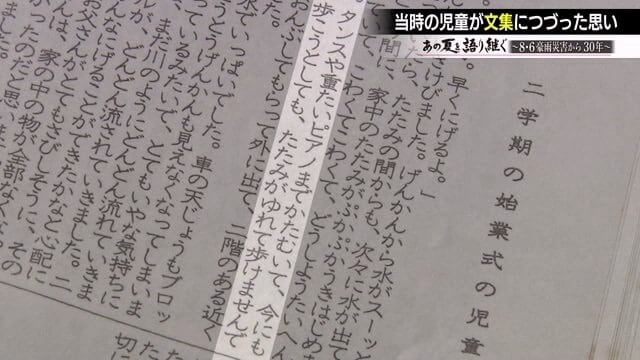 当時の児童が文集につづった思い
あの夏を語り継ぐ
~8・6豪雨災害から30年~
二学期の始業式の児童
。早くにげるよ。」
けびました。げんかんから水がスーッと
ら、たたみの間からも、次々に水が出て
間に、家中のたたみがぷかぷかうきはじめ
て、こわくてこわくて、どうしようたいへん
タンスや重たいピアノまでかたむいて、今にも
歩こうとしても、たたみがゆれて歩けませんで
おんぶしてもらって外に出て、二階のある近く
水でいっぱいでした。車の天じょうもブロッ
げんかんも見えなくなってしまいま
ているみたいで、とてもいやな気持ちに
どんどん流されていきま
にげることができたかなと心配に
とてもさびしそうに、その
家の中の物が全部なく
まったのだと思いま